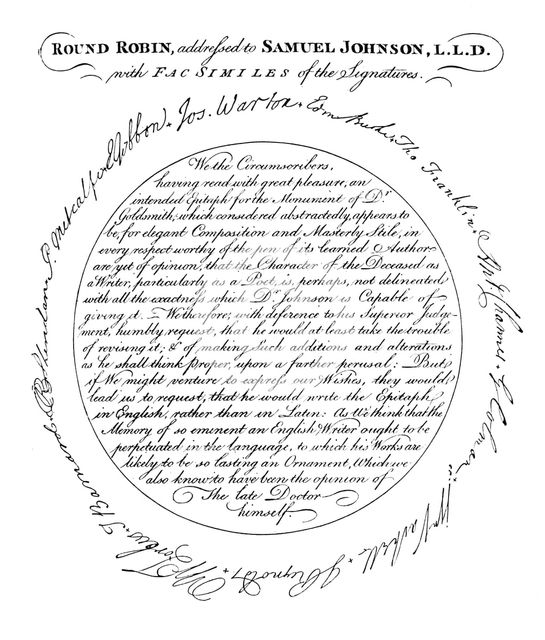 ROUND ROBIN, addressed to SAMUEL JOHNSON, L.L.D.
with FAC SIMILES of the Signatures.
We the Circumscribers,
having read with great pleasure, an
intended Epitaph for the Monument of Dr
Goldsmith; which considered abstractedly, appears to
be, for elegant Composition and Masterly Stile, in
every respect worthy of the pen of its learned Author,
are yet of opinion, that the Character of the Deceased as
a Writer, particularly as a Poet, is, perhaps, not delineated
with all the exactness which Dr Johnson is Capable of
giving it. — We therefore, with deference to his Superior Judge-
ment, humbly request, that he would at least take the trouble
of revising it; & of making Such additions and alterations
as he shall think proper, upon a farther perusal: — But
if We might venture to express our Wishes, they would
lead us to request, that he would write the Epitaph
in English, rather than in Latin: As We think that the
Memory of so eminent an English Writer ought to be
perpetuated in the language, to which his Works are
likely to be so lasting an Ornament, Which we
also know to have been the opinion of
The late Doctor
himself.
Gibbon
Jos. Warton
Edm Burke
Tho Franklin
Chamier
G Colman
Wm Vashell
J Reynolds
W Forbes
T Barnard
R B Sheridan
P Metcalfe